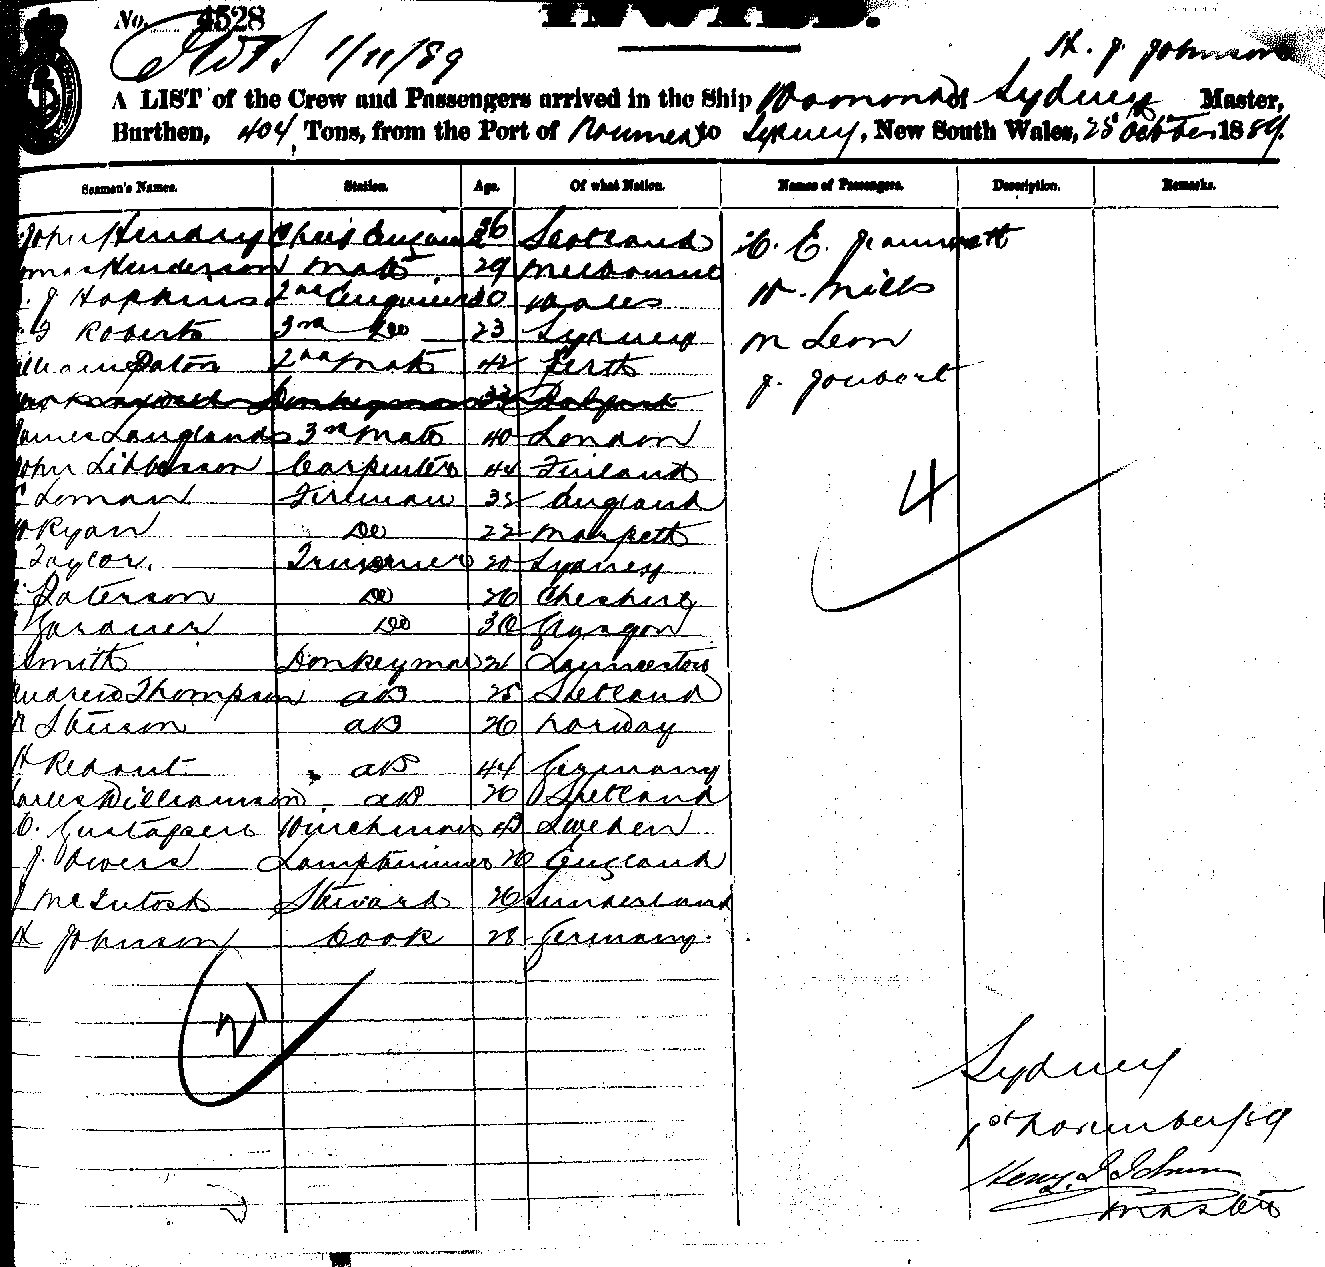 No. 4528
INWARD.
1/11/89
H. J. Johnson
A LIST of the Crew and Passengers arrived in the Ship of Sydney Master,
Burthen, 404 Tons, from the Port of Noumea to Sydney, New South Wales, 25 October 1889.
Seamen's Names. Station. Age. Of what Nation. Names of Passengers. Description. Remarks.
John Chief Engineer 36 Scotland C. E.
Henderson Mate 29 Melbourne
J Hopkins 2nd Engineer 30 Wales W. Mills
G Roberts 3rd Do 23 Sydney M Leon
Paton 2nd Mate 42 Perth
J. Joubert
Donkeyman 33 Belfast
James Langlands 3rd Mate 40 London
John Carpenter 44 Finland
Loman Fireman 35 England
4
Ryan Do 22 Morpeth
Taylor. Trimmer 20 Sydney
Paterson Do 26 Cheshire
Gardner Do 30 Glasgow
Smith Donkeyman 21 Launceston
Andrew Thompson AB 25 Shetland
AB 26 Norway
H AB 44 Germany
Charles Williamson AB 26 Shetland
O. Gustafsen Winchman 43 Sweden
J. Owens Lamptrimmer 26 England
J McIntosh Steward 26 Sunderland
H Johnson Cook 28 Germany.
21
Sydney
1st November/89
Henry J Johnson
Master